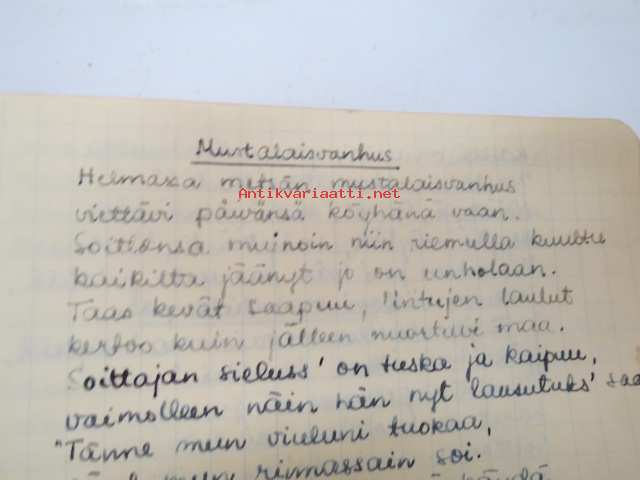 Mustalaisvanhus
Helmassa metsän mustalaisvanhus
Antikvariaatti.net
viettävi päivänsä köyhänä vaan.
Soittonsa muinoin niin riemulla kuultu
kaikilta jäänyt jo on unholaan.
Taas kevät saapuu, lintujen laulut
kertoo kuin jälleen nuortuvi maa.
Soittajan sieluss' on tuska ja kaipuu,
vaimolleen näin hän nyt lausutuks' saa
"Tänne mun viuluni tuokaa,
rinnassain soi.